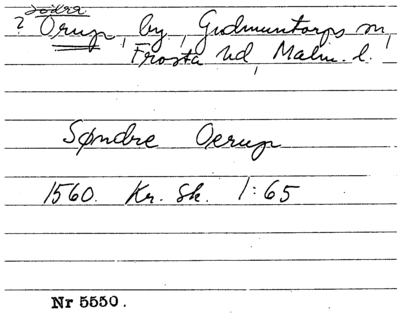 södra
? Örup, by, Gudmuntorps sn,
Frosta hd, Malm. l.
Søndre Oerup
1560. Kr. Sk. 1:65
Nr 5550.